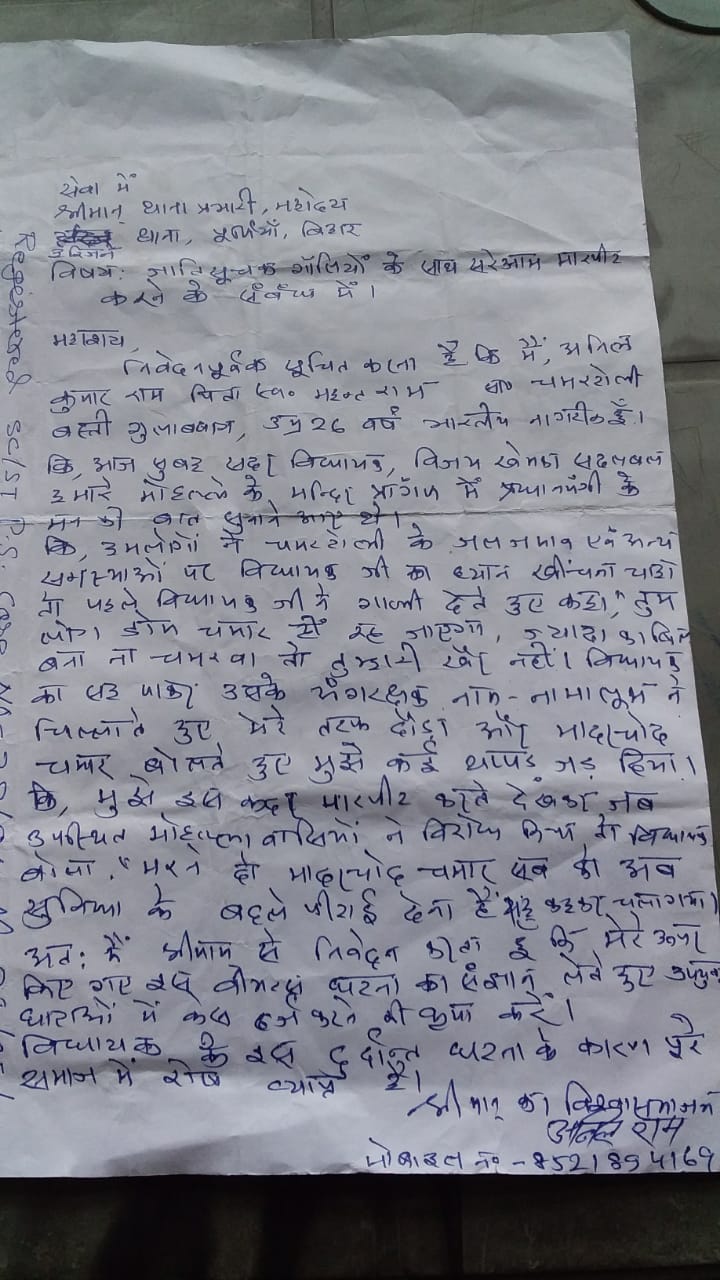 सेवा में
श्रीमान् थाना प्रभारी, महोदय
हरिजन थाना, पूर्णियाँ, बिहार
विषय: जातिसूचक गॉलियों के साथ सरेआम मारपीट
करने के संबंध में।
महाशय,
निवेदनपूर्वक सूचित करता है कि मैं, अनिल
कुमार राम पिता स्व० महन्त राम सा० चमरटोली
बस्ती गुलाबबाग, उम्र 26 वर्ष भारतीय नागरीक हूँ।
कि, आज सुबह सदर विधायक, विजय खेमका सदलबल
हमारे मोहल्ले के मन्दिर प्रांगण में प्रधानमंत्री के
मन की बात सुनाने आए थे।
कि, हमलोगों ने चमरटोली के जल जमाव एवं अन्य
समस्याओं पर विधायक जी का ध्यान खींचना चाहा
तो पहले विधायक जी ने गाली देते हुए कहा, "तुम
लोग डोम चमार ही रह जाएगा, ज्यादा काबिल
बना ना चमरवा तो तुम्हारी खैर नहीं। विधायक
का सह पाकर उसके अंगरक्षक नाम-नामालूम ने
चिल्लाते हुए मेरे तरफ दौड़ा और मादरचोद
चमार बोलते हुए मुझे कई थापड़ जड़ दिया।
कि, मुझे इस कदर मारपीट करते देखकर जब
उपस्थित मोहल्ला वासियों ने विरोध किया तो विधायक
बोला, "मरने दो मादरचोद चमार सब को अब
सुविधा के बदले पीटाई देना है" यह कहकर चला गया।
अत: मैं श्रीमान से निवेदन करता हूँ कि मेरे ऊपर
किए गए इस वीभत्स घटना का संज्ञान लेते हुए उपयुक्त
धाराओं में केस दर्ज करने की कृपा करें।
विधायक के इस दुर्दान्त घटना के कारण पूरे
समाज में रोष व्याप्त है।
श्रीमान् का विश्वासभाजन
अनिल राम
मोबाइल नं० - 8521894169
Registered SC/ST P.S. Case No